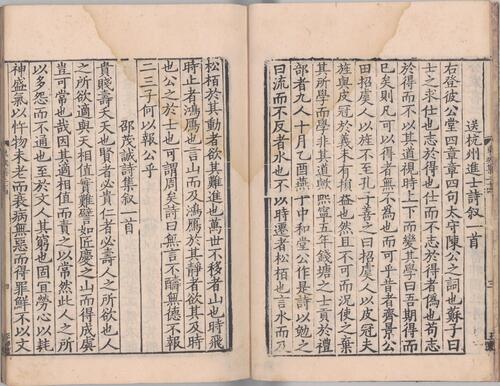 送杭州進士詩叙一首
右登彼公堂四章章四句太守陳公之詞也蘇子曰
士之求仕也志於得也仕而不志於得者偽也苟志
於得而不以其道視時上下而變其學曰吾期得而
已矣則凡可以得者無不為也而可乎昔者齊景公
田招虞人以旌不至孔子善之曰招虞人以皮冠夫
旌與皮冠於義未有損益也然且不可而況使之棄
其所學而學非其道歟熙寧五年錢塘之士貢於禮
部者九人十月乙酉燕于中和堂公作是詩以勉之
曰流而不反者水也不以時遷者松柏也言水而及
松柏於其動者欲其難進也萬世不移者山也時飛
時止者鴻鴈也言山而及鴻鴈於其靜者欲其及時
也公之於士也可謂周矣詩曰無言不醻無德不報
二三子何以報公乎
邵茂誠詩集叙一首
貴賤壽夭天也賢者必貴仁者必壽人之所欲也人
之所欲適與天相值實難譬如匠慶之山而得成虡
豈可常也哉因其適相值而責之以常然此人之所
以多怨而不通也至於文人其窮也固宜勞心以耗
神盛氣以忤物未老而衰病無惡而得罪鮮不以文